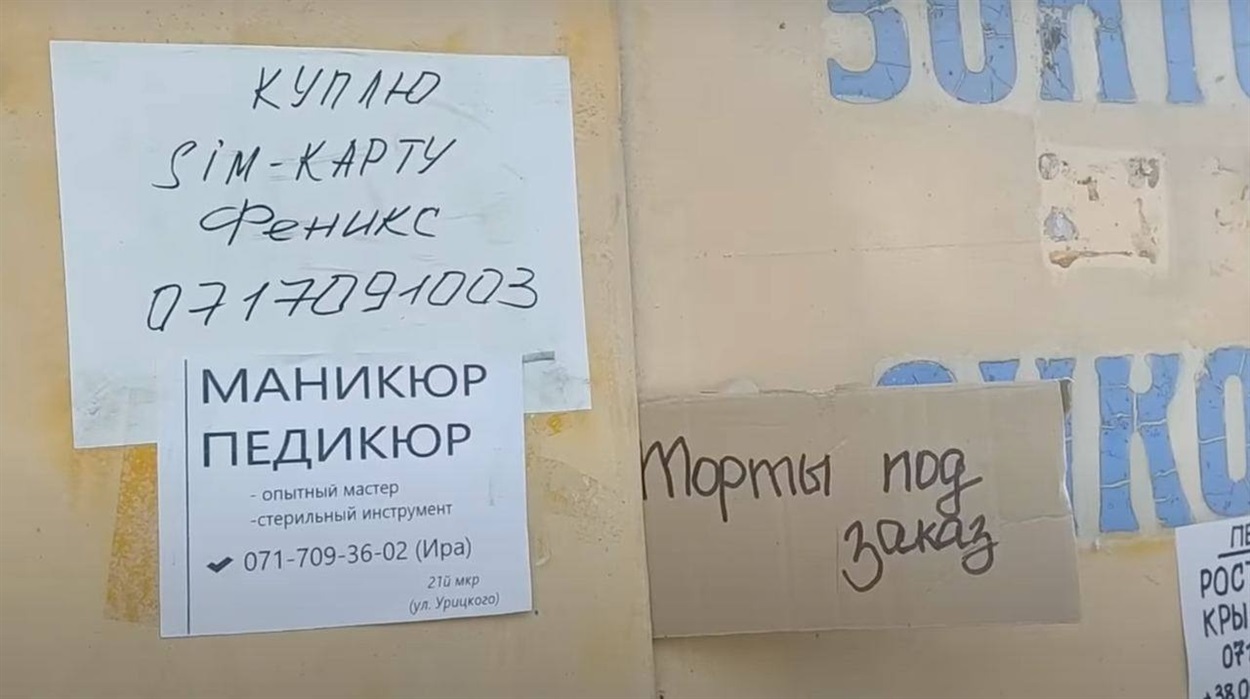 КУПЛЮ
SiM-КАРТУ
Феникс
0717091003
МАНИКЮР
ПЕДИКЮР
- опытный мастер
-стерильный инструмент
✔ 071-709-36-02 (Ира)
21й мкр
(ул. Урицкого)
Торты под
заказ
РОСТ
КРЫ
071
+38 0